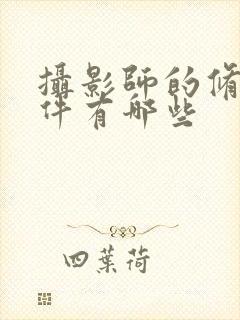 攝影師的脩
件有哪些
四葉荷